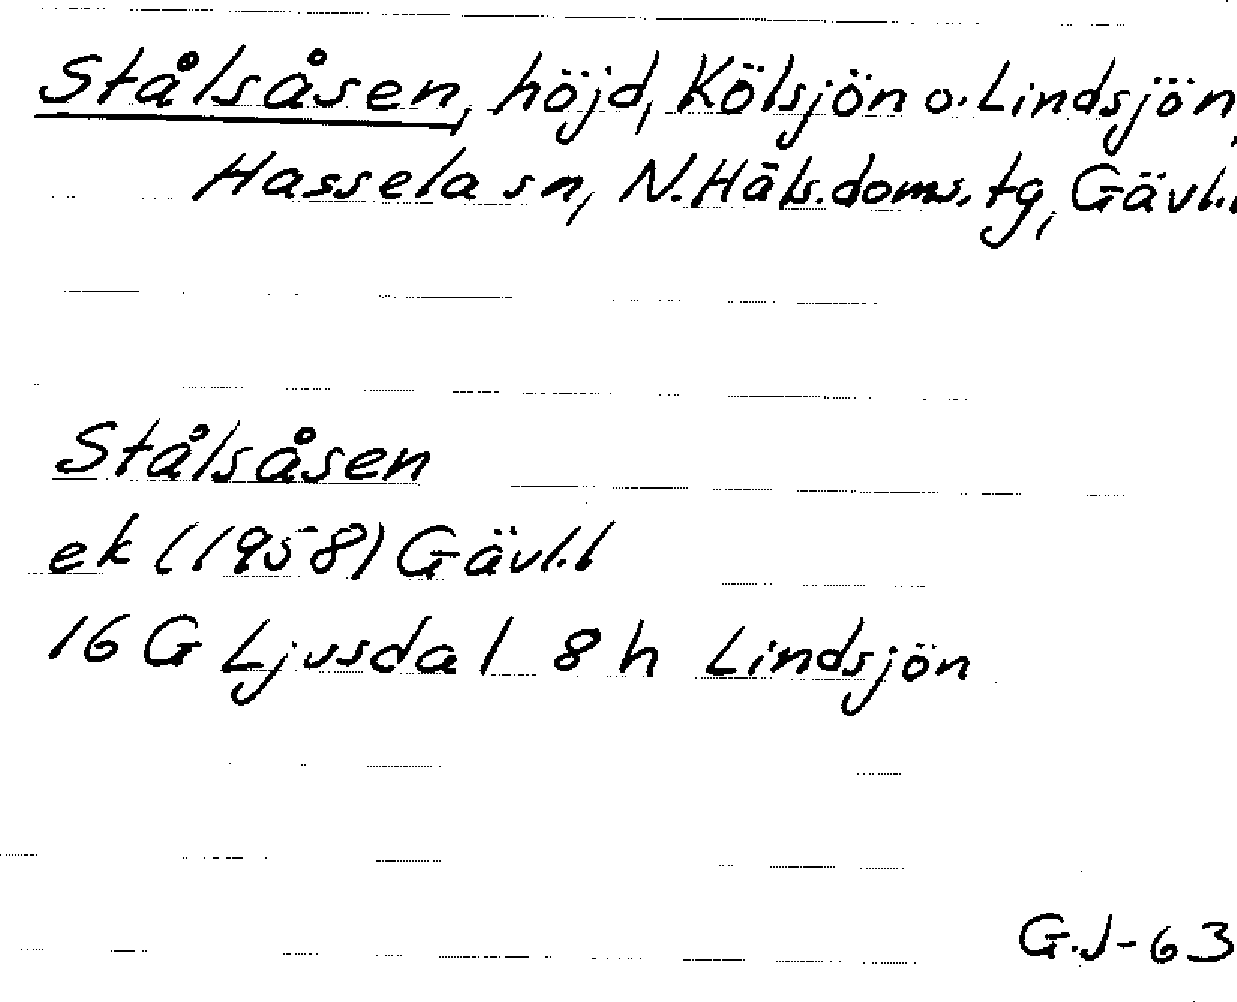 Stålsåsen, höjd, Kölsjön o. Lindsjön,
Hassela sn, N.Häls.doms.tg, Gävl.l
Stålsåsen
ek (1958) Gävl.l
16 G Ljusdal 8 h Lindsjön
G.J-63